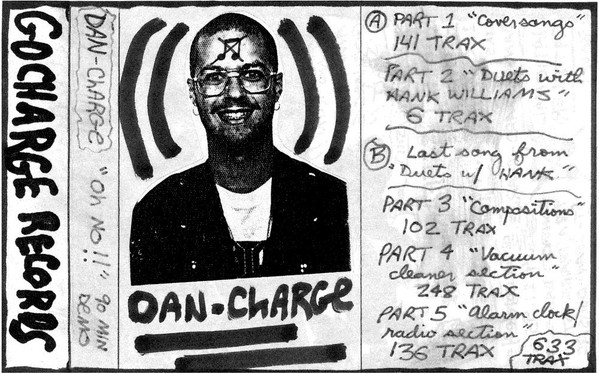 GOCHARGE RECORDS
DAN-CHARGE "Oh No!!" 90 MIN
DEMO
DAN-CHARGE
A PART 1 "Coversongs"
141 TRAX
PART 2 "Duets with
HANK WILLIAMS"
6 TRAX
B Last song from
"Duets w/ HANK"
PART 3 "Compositions"
102 TRAX
PART 4 "Vacuum
cleaner section"
248 TRAX
PART 5 "Alarm clock/
radio section"
136 TRAX
633
TRAX